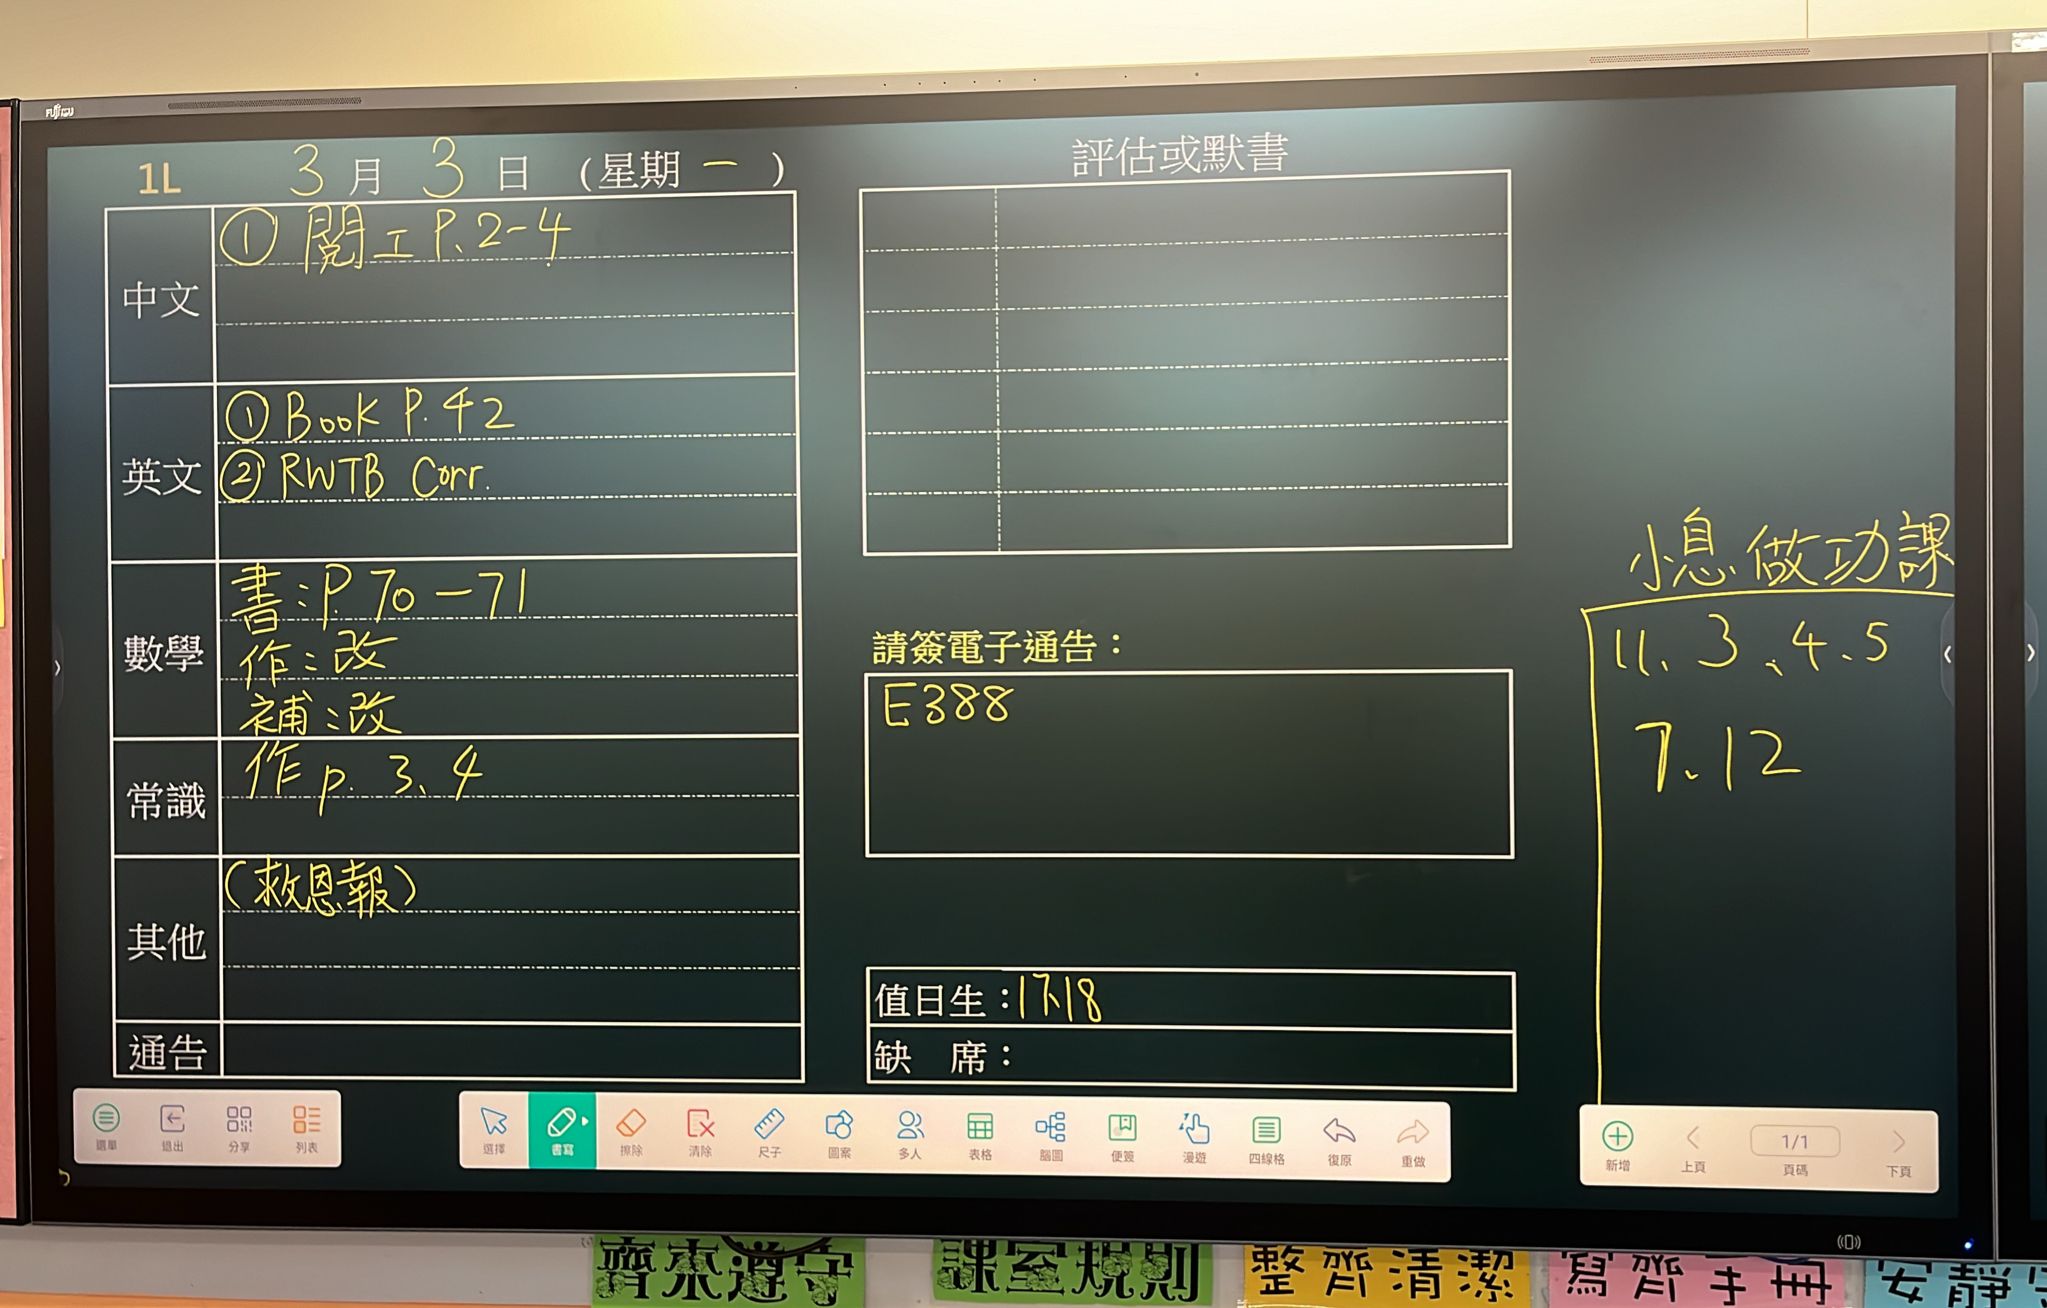 FUJITSU
1L 3月3日（星期一）
中文
① 閱工 P.2-4
英文
① Book P.42
② RWTB Corr.
數學
書：P.70-71
作：改
補：改
常識
作 p. 3、4
其他
(救恩報)
通告
評估或默書
請簽電子通告：
E388
值日生：17、18
缺　席：
小息做功課
11、3、4、5
7、12
選單 退出 分享 列表
選擇 書寫 擦除 清除 尺子 圖案 多人 表格 腦圖 便簽 漫遊 四線格 復原 重做
新增 上頁 1/1 頁碼 下頁
齊來遵守 課室規則 整齊清潔 寫齊手冊 安靜